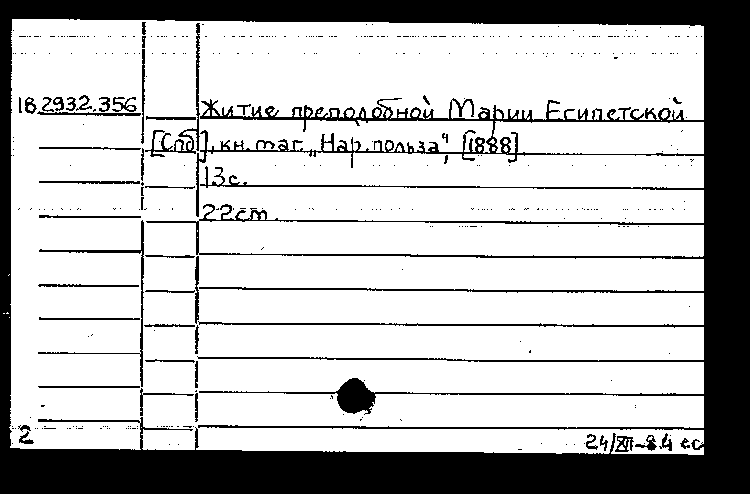 18.293.2.356 Житие преподобной Марии Египетской
[Спб], кн. маг. „Нар. польза“, [1888].
13с.
22см.
2
24/XII-84 ес